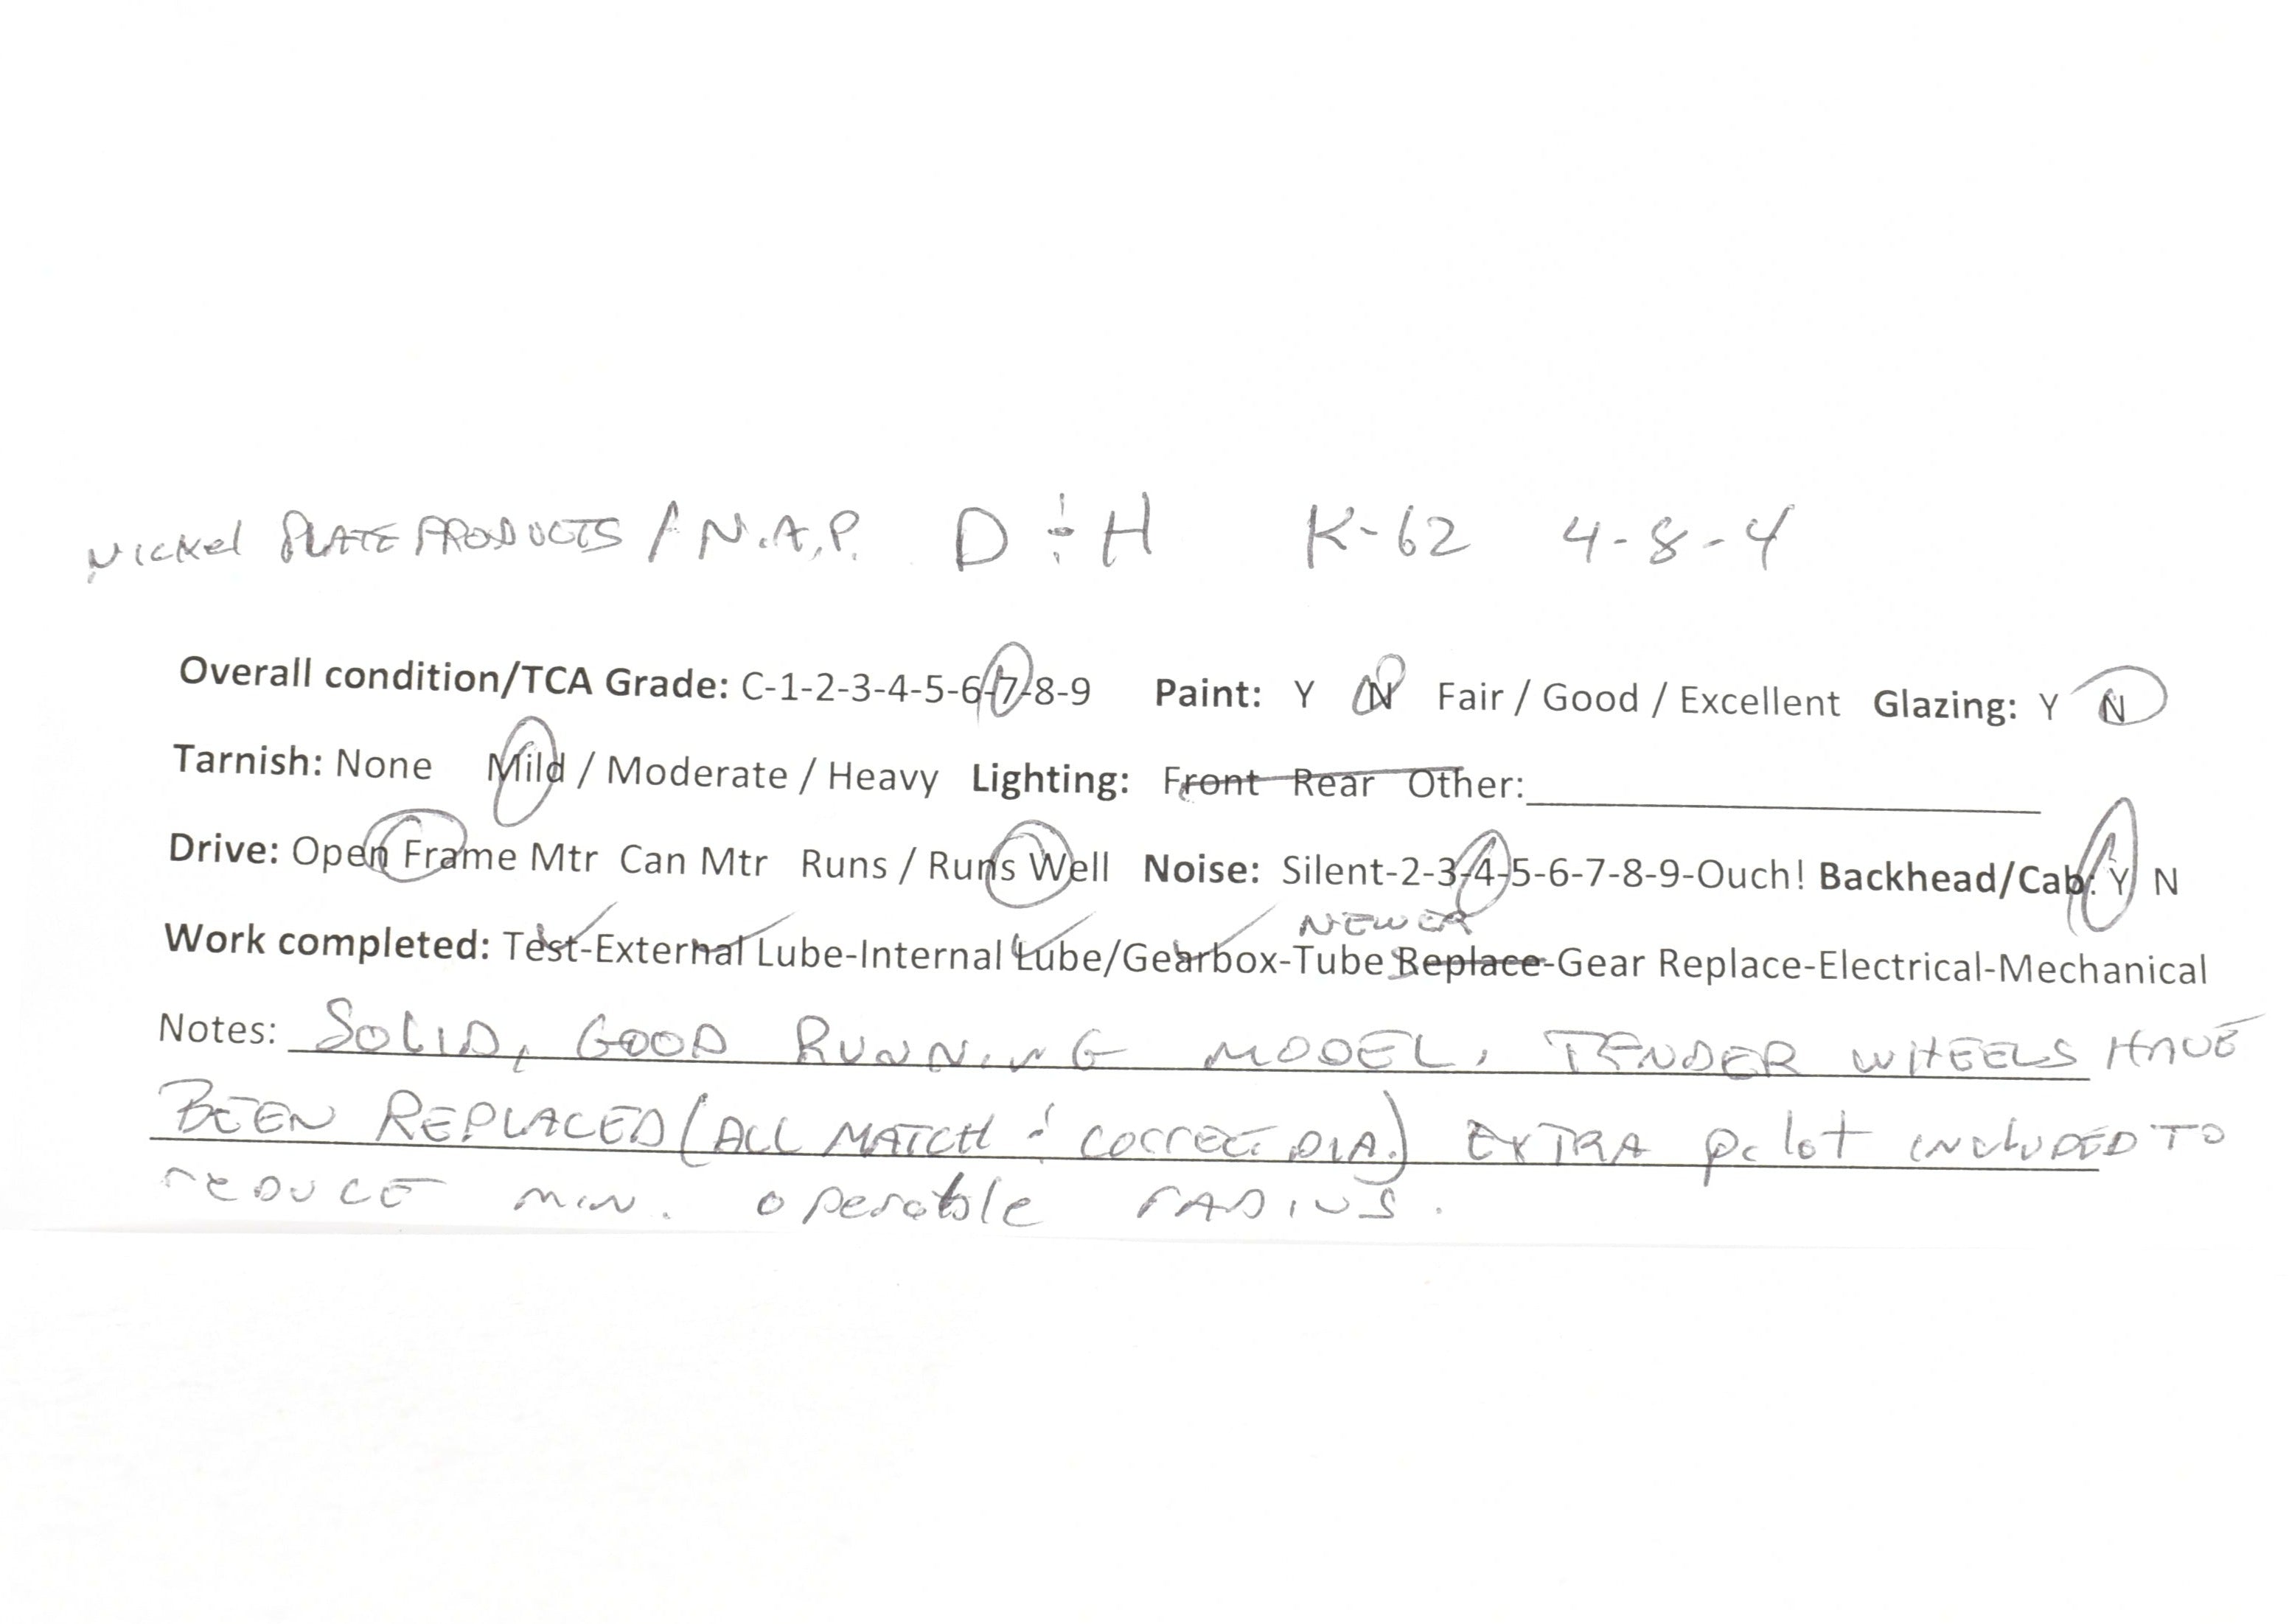 Nickel PLATE PRODUCTS / N.A.P. D & H K-62 4-8-4
Overall condition/TCA Grade: C-1-2-3-4-5-6-7-8-9 Paint: Y N Fair / Good / Excellent Glazing: Y N
Tarnish: None Mild / Moderate / Heavy Lighting: Front Rear Other:
Drive: Open Frame Mtr Can Mtr Runs / Runs Well Noise: Silent-2-3-4-5-6-7-8-9-Ouch! Backhead/Cab: Y N
NEWER
Work completed: Test-External Lube-Internal Lube/Gearbox-Tube Replace-Gear Replace-Electrical-Mechanical
Notes: SOLID, GOOD RUNNING MODEL, TENDER WHEELS HAVE
BEEN REPLACED (ALL MATCH & CORRECT DIA.) EXTRA pilot INCLUDED TO
REDUCE MIN. operable RADIUS.